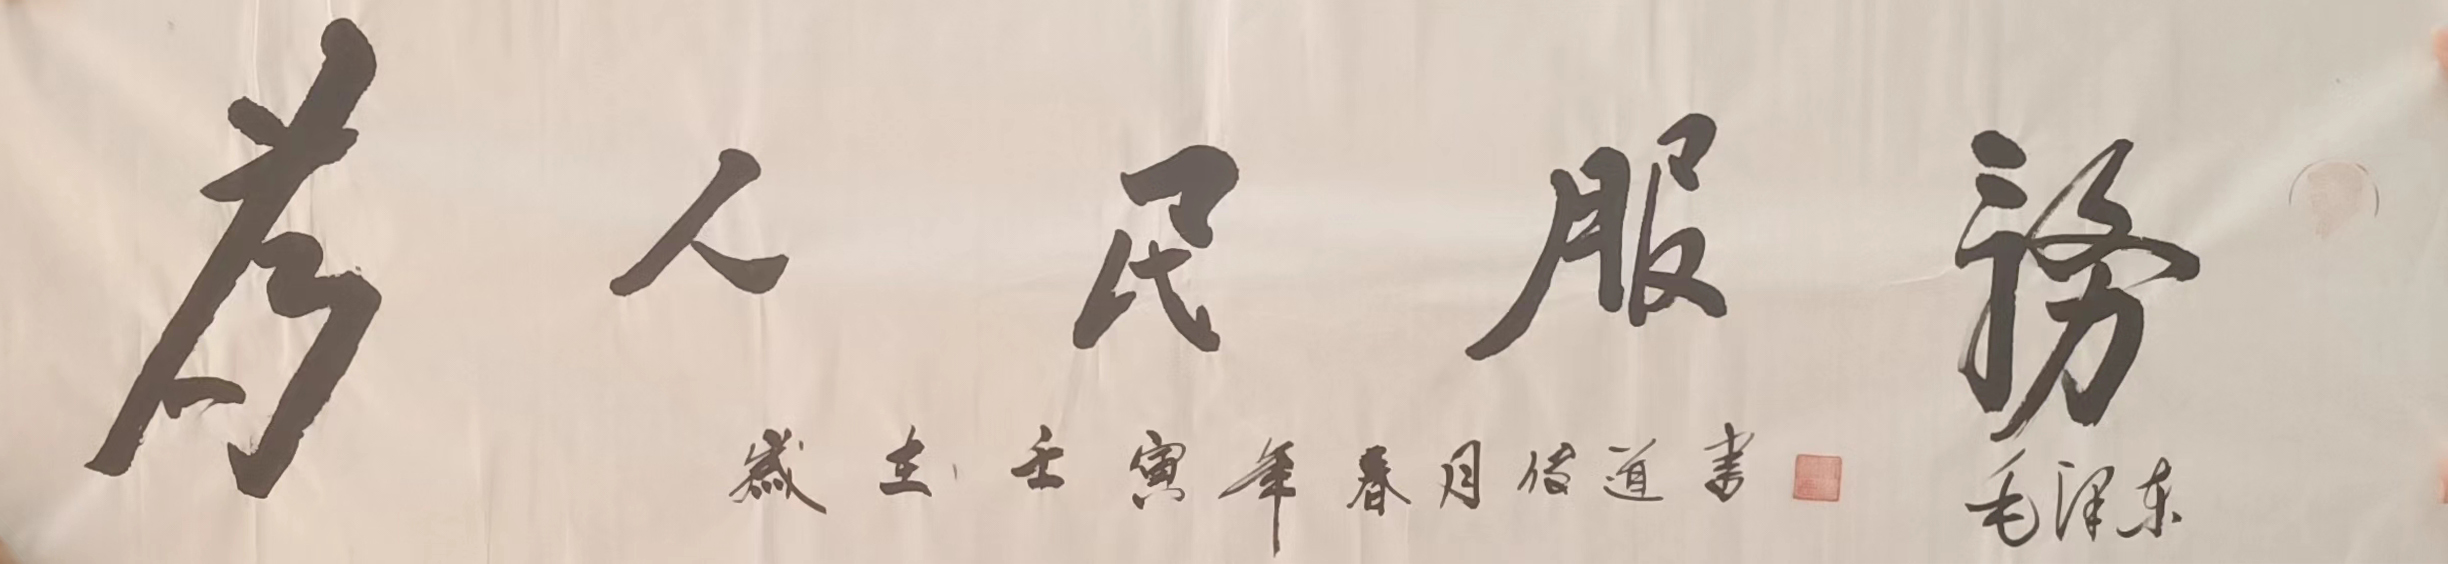 為人民服務
毛泽东
歲在壬寅年春月俊道書